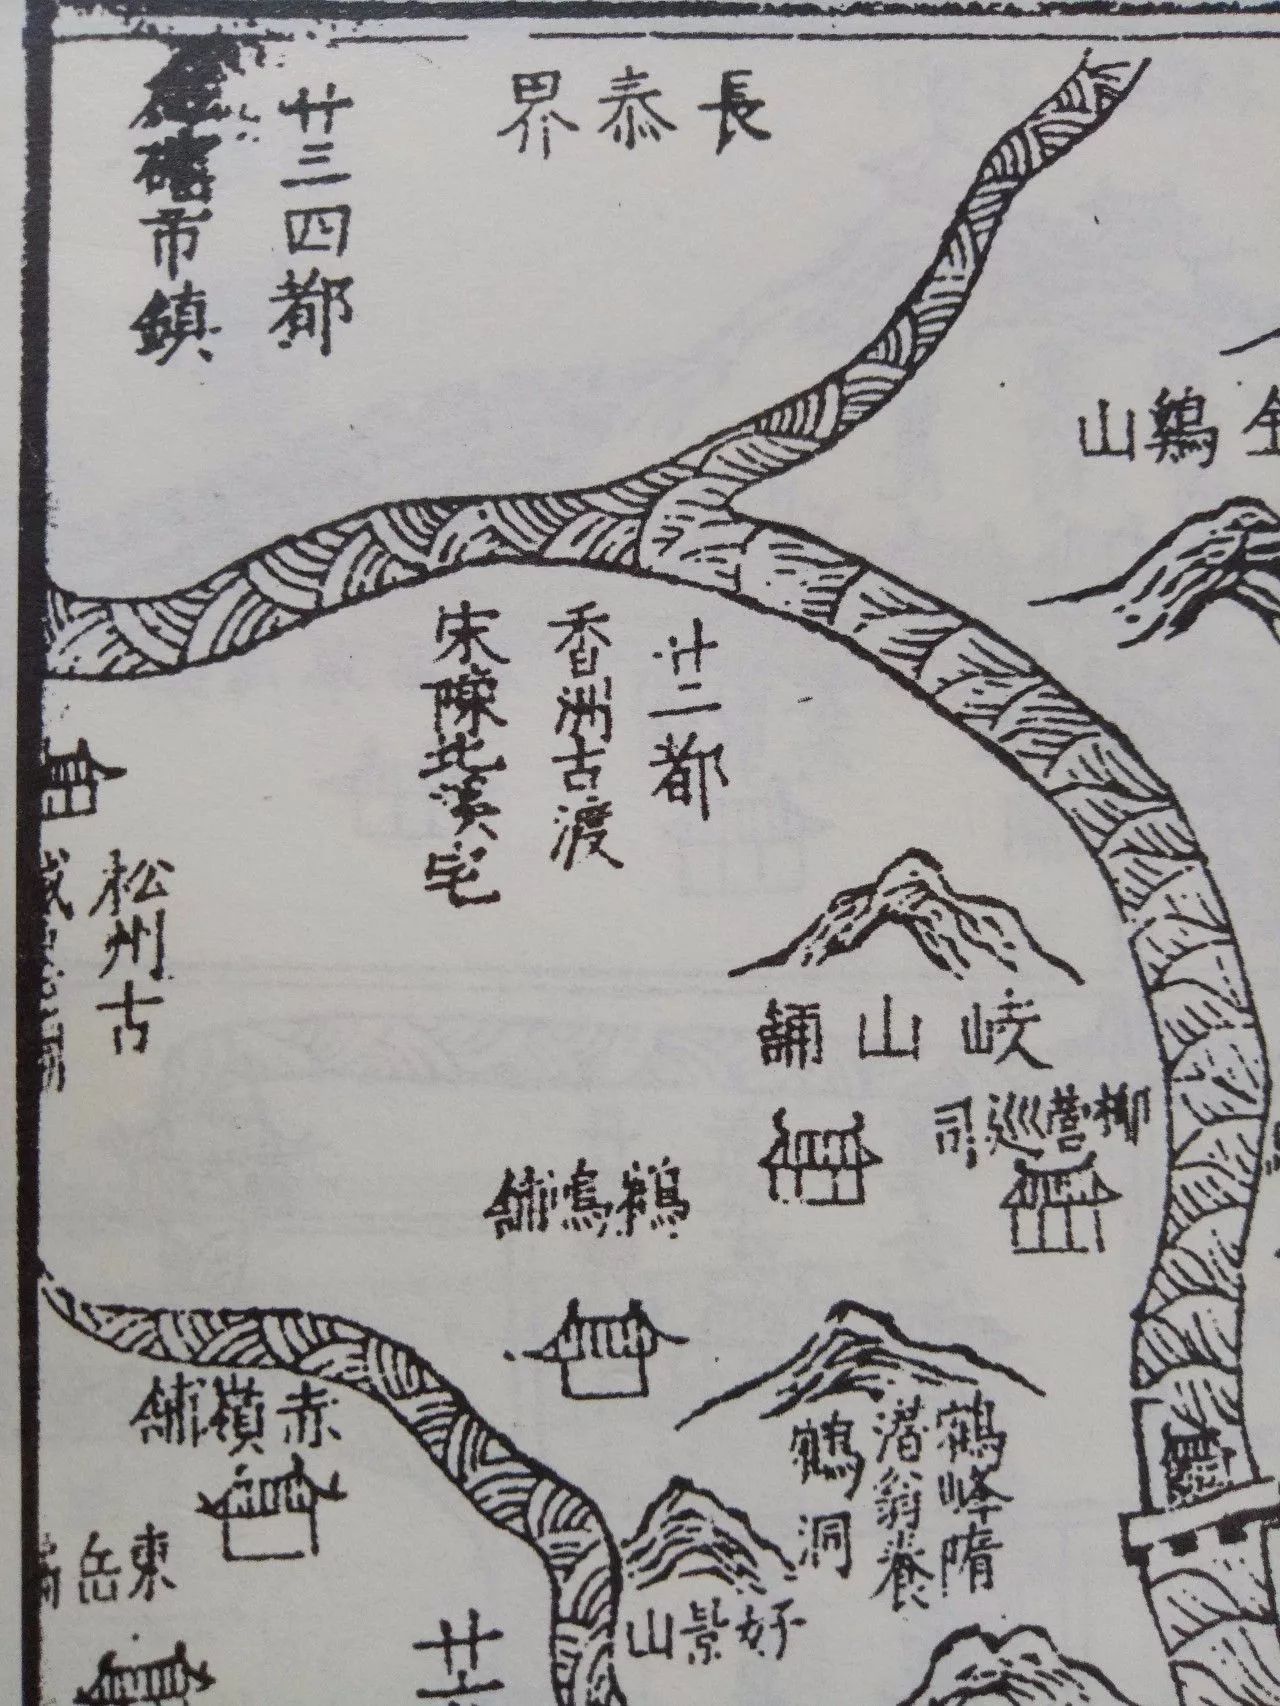 長泰界
廿三四都
市鎮
金鷄山
廿二都
香洲古渡
宋陳北溪宅
松州古
岐山鋪
柳營巡司
鶴鳴鋪
鶴峰隋
潛翁養
鶴洞
赤嶺鋪
好景山
東岳
廿